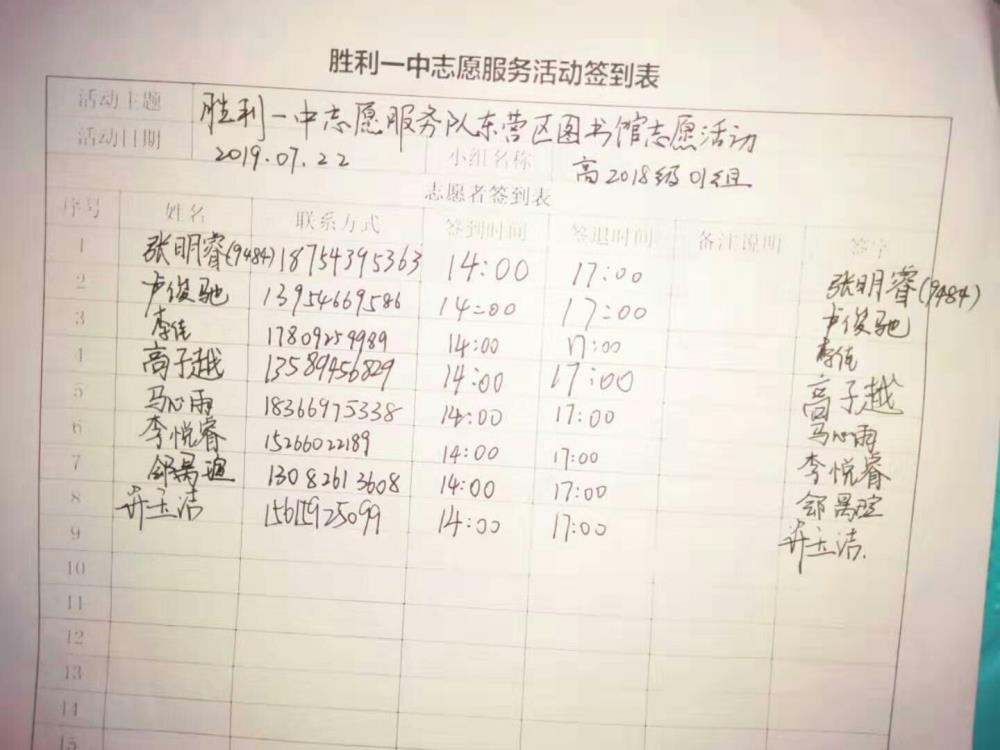 胜利一中志愿服务活动签到表
活动主题 胜利一中志愿服务队东营区图书馆志愿活动
活动日期 2019.07.22 小组名称 高2018级01组
志愿者签到表
序号 姓名 联系方式 签到时间 签退时间 备注说明 签字
1 张明睿(9484) 18754395363 14:00 17:00 张明睿(9484)
2 卢俊驰 13954669586 14:00 17:00 卢俊驰
3 李佳 17809259989 14:00 17:00 李佳
4 高子越 13589456829 14:00 17:00 高子越
5 马心雨 18366975338 14:00 17:00 马心雨
6 李悦睿 15266022189 14:00 17:00 李悦睿
7 13082613608 14:00 17:00
8 玉洁 15615925099 14:00 17:00 玉洁
9
10
11
12
13
14
15